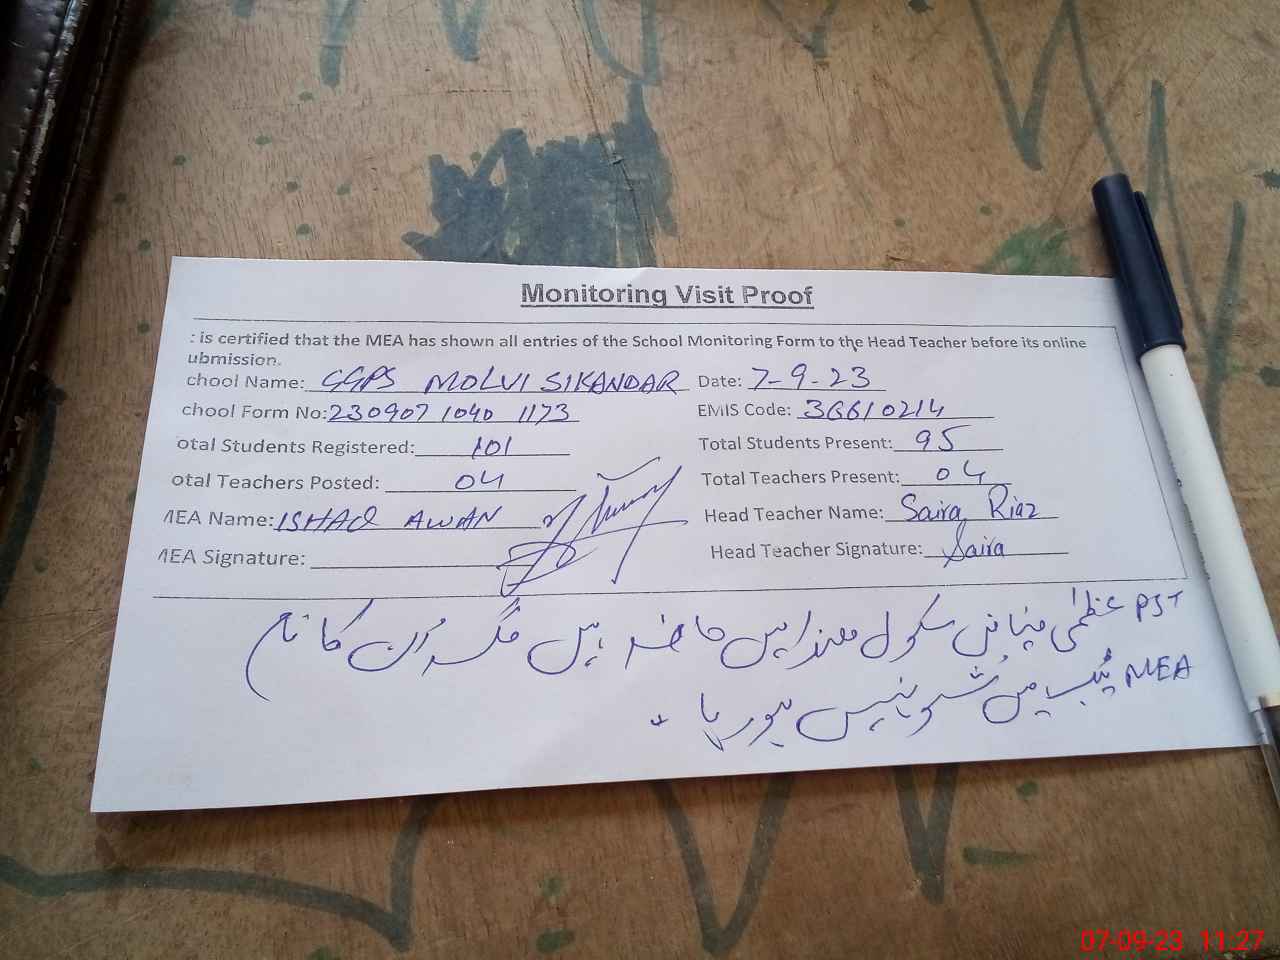 Monitoring Visit Proof
: is certified that the MEA has shown all entries of the School Monitoring Form to the Head Teacher before its online
ubmission.
chool Name: GGPS MOLVI SIKANDAR Date: 7-9-23
chool Form No: 230907 1040 1173 EMIS Code: 36610214
otal Students Registered: 101 Total Students Present: 95
otal Teachers Posted: 04 Total Teachers Present: 04
MEA Name: ISHAQ AWAN Head Teacher Name: Saira Riaz
MEA Signature: Head Teacher Signature: Saira
PST عظمٰی فیاض سکول ھذا میں حاضر ہیں مگر ان کا نام
MEA ٹیب میں شو نہیں ہو رہا
07-09-23 11:27